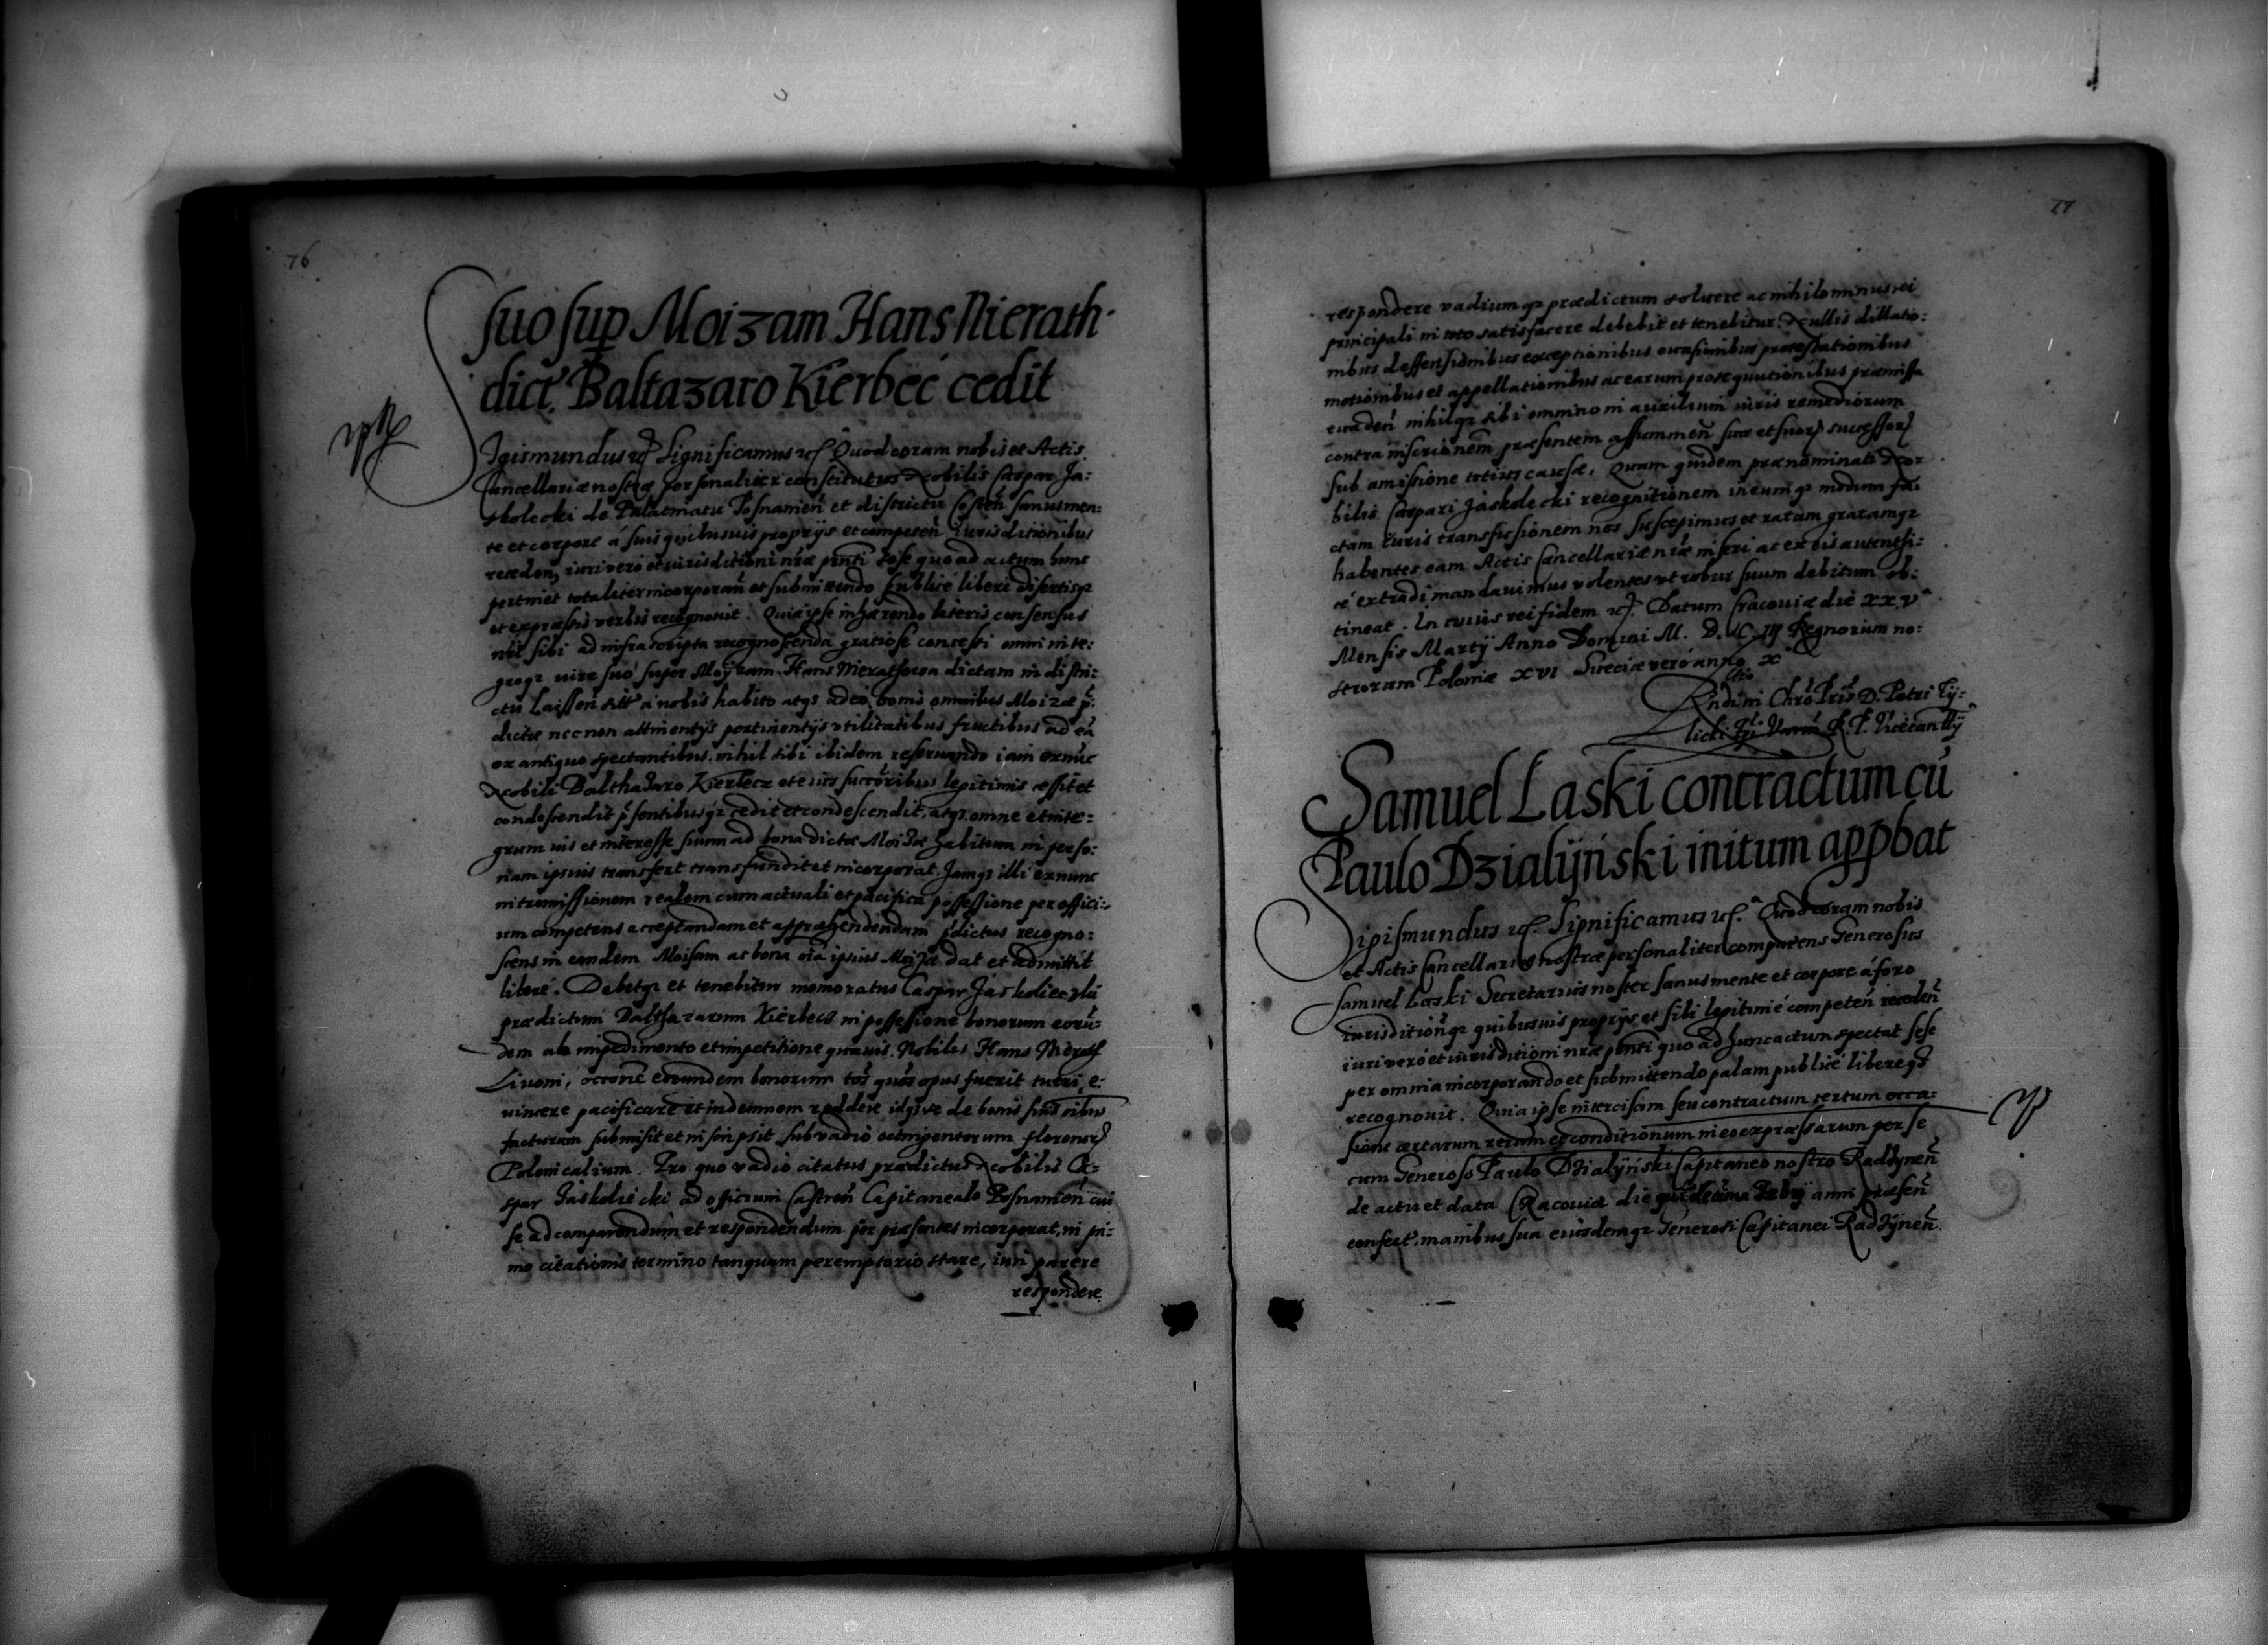 76
suo sup Moizam Hans Nierath
dict. Baltazaro Kierbec cedit
Sigismundus etc. Significamus etc. Quod coram nobis et Actis
Cancellariæ nostræ personaliter constitutus Nobilis Caspar Ja:
skolecki de Palatinatu Posnanien et districtu Costen sanus men:
te et corpore á suis quibusuis proprijs et competen iurisdictionibus
receden, iuri vero et iurisdictioni nræ pnti sese quo ad actum hunc
pertinet totaliter incorporan et submittendo publicé liberé disertisqz
et expræssis verbis recognouit. Quia ipse inhærendo lateris consensus
nri sibi ad infra scripta recognoscenda gratiosé concessi omni inte:
groqz iure suo super Moÿzam Hans Nierathowa dictam in distri:
ctu Laissen sitt a nobis habito atqz adeo bonis omnibus Moizæ p:
dictæ nec non attinentijs pertinentijs vtilitatibus fructibus ad ea
ex antiquo spectantibus, nihil sibi ibidem reseruando iam exnuc
Nobili Balthazaro Kierbecz eteius succoribus legitimis cessit et
condescendit psentibusqz cedit et condescendit, atqz omne et inte:
grum ius et interesse suum ad bona dictæ Moizæ habitum in perso:
nam ipsius transfert transfundit et incorporat. Jamqz illi exnunc
intromissionem realem cum actuali et pacifica possessione per offici:
um competens acceptandam et appræhendendam pdictus recogno:
scens in eandem Moisam ac bona oia ipsius Moizæ dat et admittit
liberé. Debetqz et tenebitur memoratus Caspar Jaskolieczki
prædictum Balthazarum Kierbecs in possessione bonorum eoru:
dem ab impedimento et impetitione quauis Nobilis Hans Nierath
Liuoni, occone eorundem bonorum tos quos opus fuerit tueri, e:
uincere pacificare et indemnem reddere idqz se de bonis suis oibus
facturum submisit et inscripsit sub vadio octingentorum florenor
Polonicalium. Pro quo vadio citatus prædictus Nobilis Ca:
spar Jaskoliecki ad officium Castren Capitaneale Posnanien cui
se ad comparendum et respondendum per præsentes incorporat, in pri:
mo citationis termino tanquam peremptorio stare, iuri parere
respondere
77
respondere vadiumqz prædictum soluere ac nihilominus rei
principali in toto satisfacere debebit et tenebitur. Nullis dillatio:
nibus deffensionibus exceptionibus euasionibus protestationibus
motionibus et appellationibus ac earum prosequutionibus præmissa
euaden nihilqz sibi omnino in auxilium iuris remediorum
contra inscrionem præsentem assummen suæ et suor successor
sub amissione totius causæ. Quam quidem prænominati No:
bilis Caspari Jaskolecki recognitionem in eumqz modum fa:
ctam iuris transfusionem nos suscepimus et ratam gratamqz
habentes eam Actis Cancellariæ nræ inseri ac ex eis autenthi:
cé extradi mandauimus volentes vt robur suum debitum ob:
tineat. In cuius rei fidem etc. Datum Cracouiæ die XXV
Mensis Martij Anno Domini M. D. IC. III Regnorum no:
strorum Poloniæ XVI Sueciæ vero anno X
Rndi in Chro Pris D. Petri Ty:
licki R. P. Vicecanllÿ
Samuel Laski contractum cu
Paulo Dzialÿński initum appbat
Sigismundus etc. Significamus etc. Quod coram nobis
et Actis Cancellariæ nostræ personaliter comparens Generosus
Samuel Laski Secretarius noster sanus mente et corpore á foro
iurisditionqz quibusuis proprijs et sibi legitimé competen receden
iuri vero et iurisditioni nræ pnti quo ad hunc actum spectat sese
per omnia incorporando et submittendo palam publicé liberéqz
recognouit. Quia ipse intercisam seu contractum certum occa:
sione certarum rerum et conditionum in eo expræssarum per se
cum Generoso Paulo Dzialÿński Capitaneo nostro Radzynen
de actu et data Cracouiæ die anni præsen
confect. manibus sua eiusdemqz Generosi Capitanei Radzÿnen